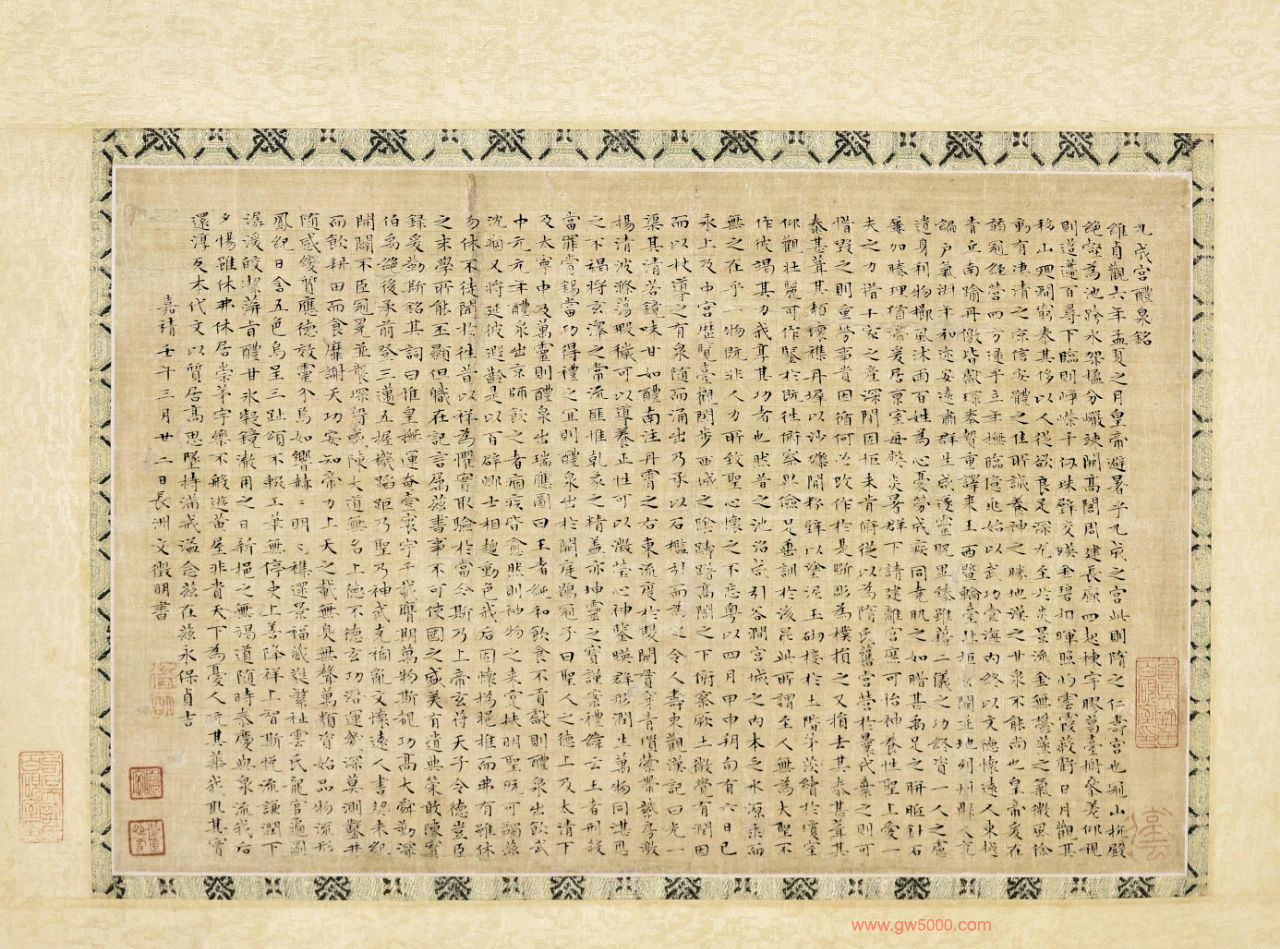 九成宮醴泉銘
維貞觀六年孟夏之月皇帝避暑乎九成之宮此則隋之仁壽宮也冠山抗殿
絕壑為池跨水架楹分巖竦闕高閣周建長廊四起棟宇膠葛臺榭參差仰視
則迢遰百尋下臨則崢嶸千仞珠璧交暎金碧相暉照灼雲霞蔽虧日月觀其
移山迴澗窮泰極侈以人從欲良足深尤至於炎景流金無鬱蒸之氣微風徐
動有淒清之涼信安體之佳所誠養神之勝地漢之甘泉不能尚也皇帝爰在
弱冠經營四方逮乎立年撫臨億兆始以武功壹海內終以文德懷遠人東越
青丘南踰丹徼皆獻琛奉贄重譯來王西暨輪臺北拒玄闕並地列州縣人充
編戶氣淑年和邇安遠肅群生咸遂靈貺畢臻雖藉二儀之功終資一人之慮
遺身利物櫛風沐雨百姓為心憂勞成疾同堯肌之如腊甚禹足之胼胝針石
屢加腠理猶滯爰居京室每弊炎暑群下請建離宮庶可怡神養性聖上愛一
夫之力惜十家之產深閉固拒未肯俯從以為隋氏舊宮營於曩代棄之則可
惜毀之則重勞事貴因循何必改作於是斵彫為樸損之又損去其泰甚葺其
泰甚葺其頹壞雜丹墀以沙礫間粉壁以塗泥玉砌接於土階茅茨續於瓊室
仰觀壯麗可作鑒於既往俯察卑儉足垂訓於後昆此所謂至人無為大聖不
作彼竭其力我享其功者也然昔之池沼咸引谷澗宮城之內本乏水源求而
無之在乎一物既非人力所致聖心懷之不忘粵以四月甲申朔旬有六日己
亥上及中宮歷覽臺觀閑步西城之陰躊躇高閣之下俯察厥土微覺有潤因
而以杖導之有泉隨而涌出乃承以石檻引而為之令人壽東觀漢記曰光一
渠其清若鏡味甘如醴南注丹霄之右東流度於雙闕貫穿青瑣縈帶紫房激
揚清波滌蕩瑕穢可以導養正性可以澂瑩心神鑒暎群形潤生萬物同湛恩
之不竭將玄澤之常流匪惟乾象之精蓋亦坤靈之寶謹案禮緯云王者刑殺
當罪賞錫當功得禮之宜則醴泉出於闕庭鶡冠子曰聖人之德上及太清下
及太寧中及萬靈則醴泉出瑞應圖曰王者純和飲食不貢獻則醴泉出飲武
中元元年醴泉出京師飲之者痼疾皆愈然則神物之來寔扶明聖既可蠲茲
沈痼又將延彼遐齡是以百辟卿士相趨動色我后固懷撝挹推而弗有雖休
勿休不徒聞於往昔以祥為懼實取驗於當今斯乃上帝玄符天子令德豈臣
之末學所能丕顯但職在記言屬茲書事不可使國之盛美有遺典策敢陳實
錄爰勒斯銘其詞曰惟皇撫運奄壹寰宇千載膺期萬物斯覩功高大舜勤深
伯禹絕後承前登三邁五握機蹈矩乃聖乃神武克禍亂文懷遠人書契未紀
開闢不臣冠冕並襲琛贄咸陳大道無名上德不德玄功潛運幾深莫測鑿井
而飲耕田而食靡謝天功安知帝力上天之載無臭無聲萬類資始品物流形
隨感變質應德效靈介焉如響赫〻明〻雜遝景福葳蕤繁祉雲氏龍官龜圖
鳳紀日含五色烏呈三趾頌不輟工筆無停史上善降祥上智斯悅流謙潤下
潺湲皎潔蓱旨醴甘冰凝鏡澈用之日新挹之無竭道隨時泰慶與泉流我后
夕惕雖休弗休居崇茅宇樂不般遊黃屋非貴天下為憂人玩其華我取其實
還淳反本代文以質居高思墜持滿戒溢念茲在茲永保貞吉
嘉靖壬午三月廿二日長洲文徵明書
www.gw5000.com